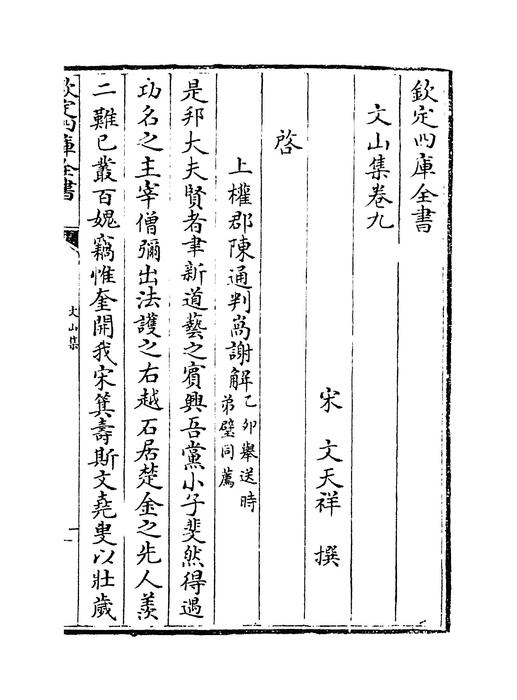 欽定四庫全書
文山集卷九
宋 文天祥 撰
啓
上權郡陳通判嵩謝解乙卯舉送時弟璧同薦
是邦大夫賢者聿新道藝之賓興吾黨小子斐然得遇
功名之主宰僧彌出法護之右越石居楚金之先人羨
二難已叢百媿竊惟奎開我宋箕壽斯文堯叟以壯歲
欽定四庫全書
文山集
一